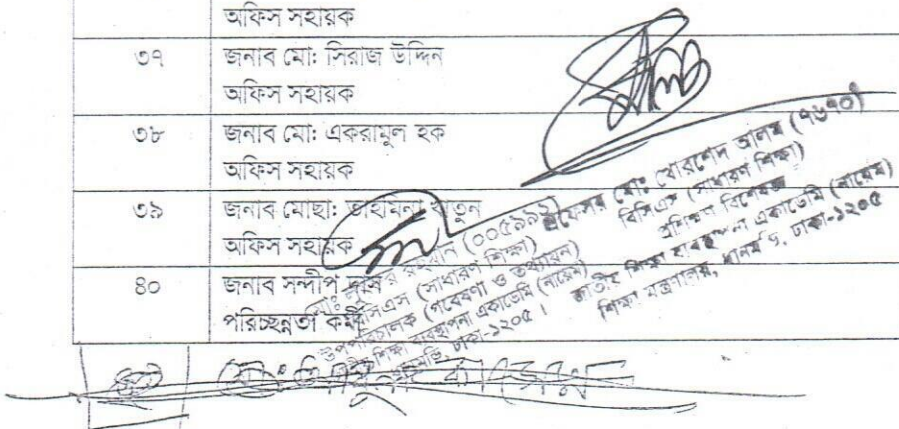 অফিস সহায়ক
৩৭ জনাব মো: সিরাজ উদ্দিন
অফিস সহায়ক
৩৮ জনাব মো: একরামুল হক
অফিস সহায়ক
৩৯ জনাব মোছা: তাহমিনা খাতুন
অফিস সহায়ক
৪০ জনাব সন্দীপ দাস
পরিচ্ছন্নতা কর্মী
প্রফেসর মোঃ খোরশেদ আলম (৭৬৭০)
বিসিএস (সাধারণ শিক্ষা)
প্রশিক্ষণ বিশেষজ্ঞ
জাতীয় শিক্ষা ব্যবস্থাপনা একাডেমি (নায়েম)
শিক্ষা মন্ত্রণালয়, ধানমন্ডি, ঢাকা-১২০৫
রহমান
বিসিএস (সাধারণ শিক্ষা)
উপপরিচালক (গবেষণা ও তথ্যায়ন)
শিক্ষা ব্যবস্থাপনা একাডেমি (নায়েম)
ঢাকা-১২০৫।